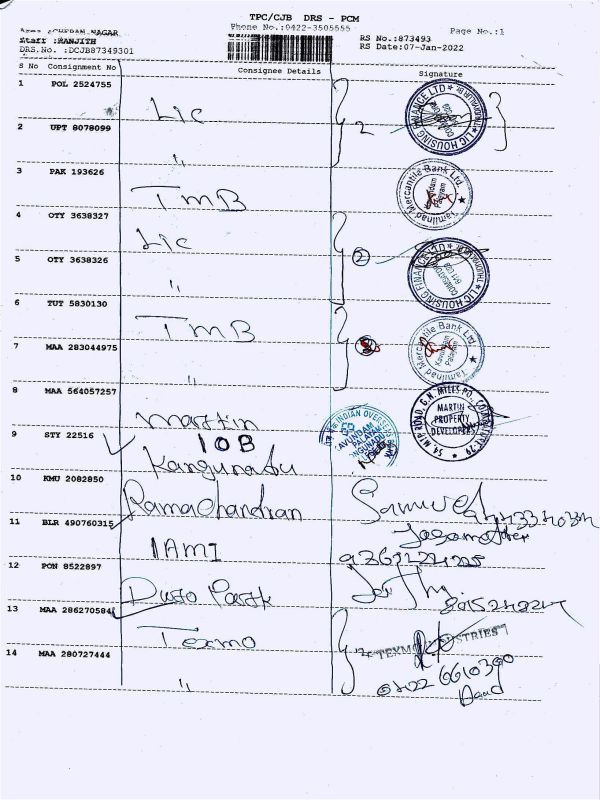 TPC/CJB DRS - PCM
Phone No.:0422-3505555 Page No.:1
Area :CHERAN NAGAR
Staff :RANJITH RS No.:873493
DRS.No. :DCJB87349301 RS Date:07-Jan-2022
S No Consignment No Consignee Details Signature
1 POL 2524755
Lic 2
LIC HOUSING FINANCE LTD
2 UPT 8078099
"
3 PAK 193626
TMB
Tamilnad Mercantile Bank Ltd.
4 OTY 3638327
Lic 2
LIC HOUSING FINANCE LTD
5 OTY 3638326
"
6 TUT 5830130
TMB
Tamilnad Mercantile Bank Ltd.
7 MAA 283044975
"
8 MAA 564057257
Martin
54, MTP ROAD, G.N. MILLS PO.,
MARTIN
PROPERTY
DEVELOPERS
9 STY 22516
IOB
INDIAN OVERSEAS
Kangunadu
10 KMU 2082850
Ramachandran
11 BLR 490760315
IAMI
12 PON 8522897
13 MAA 286270584
Texmo
TEXMO INDUSTRIES
14 MAA 280727444
"
0422 6610390